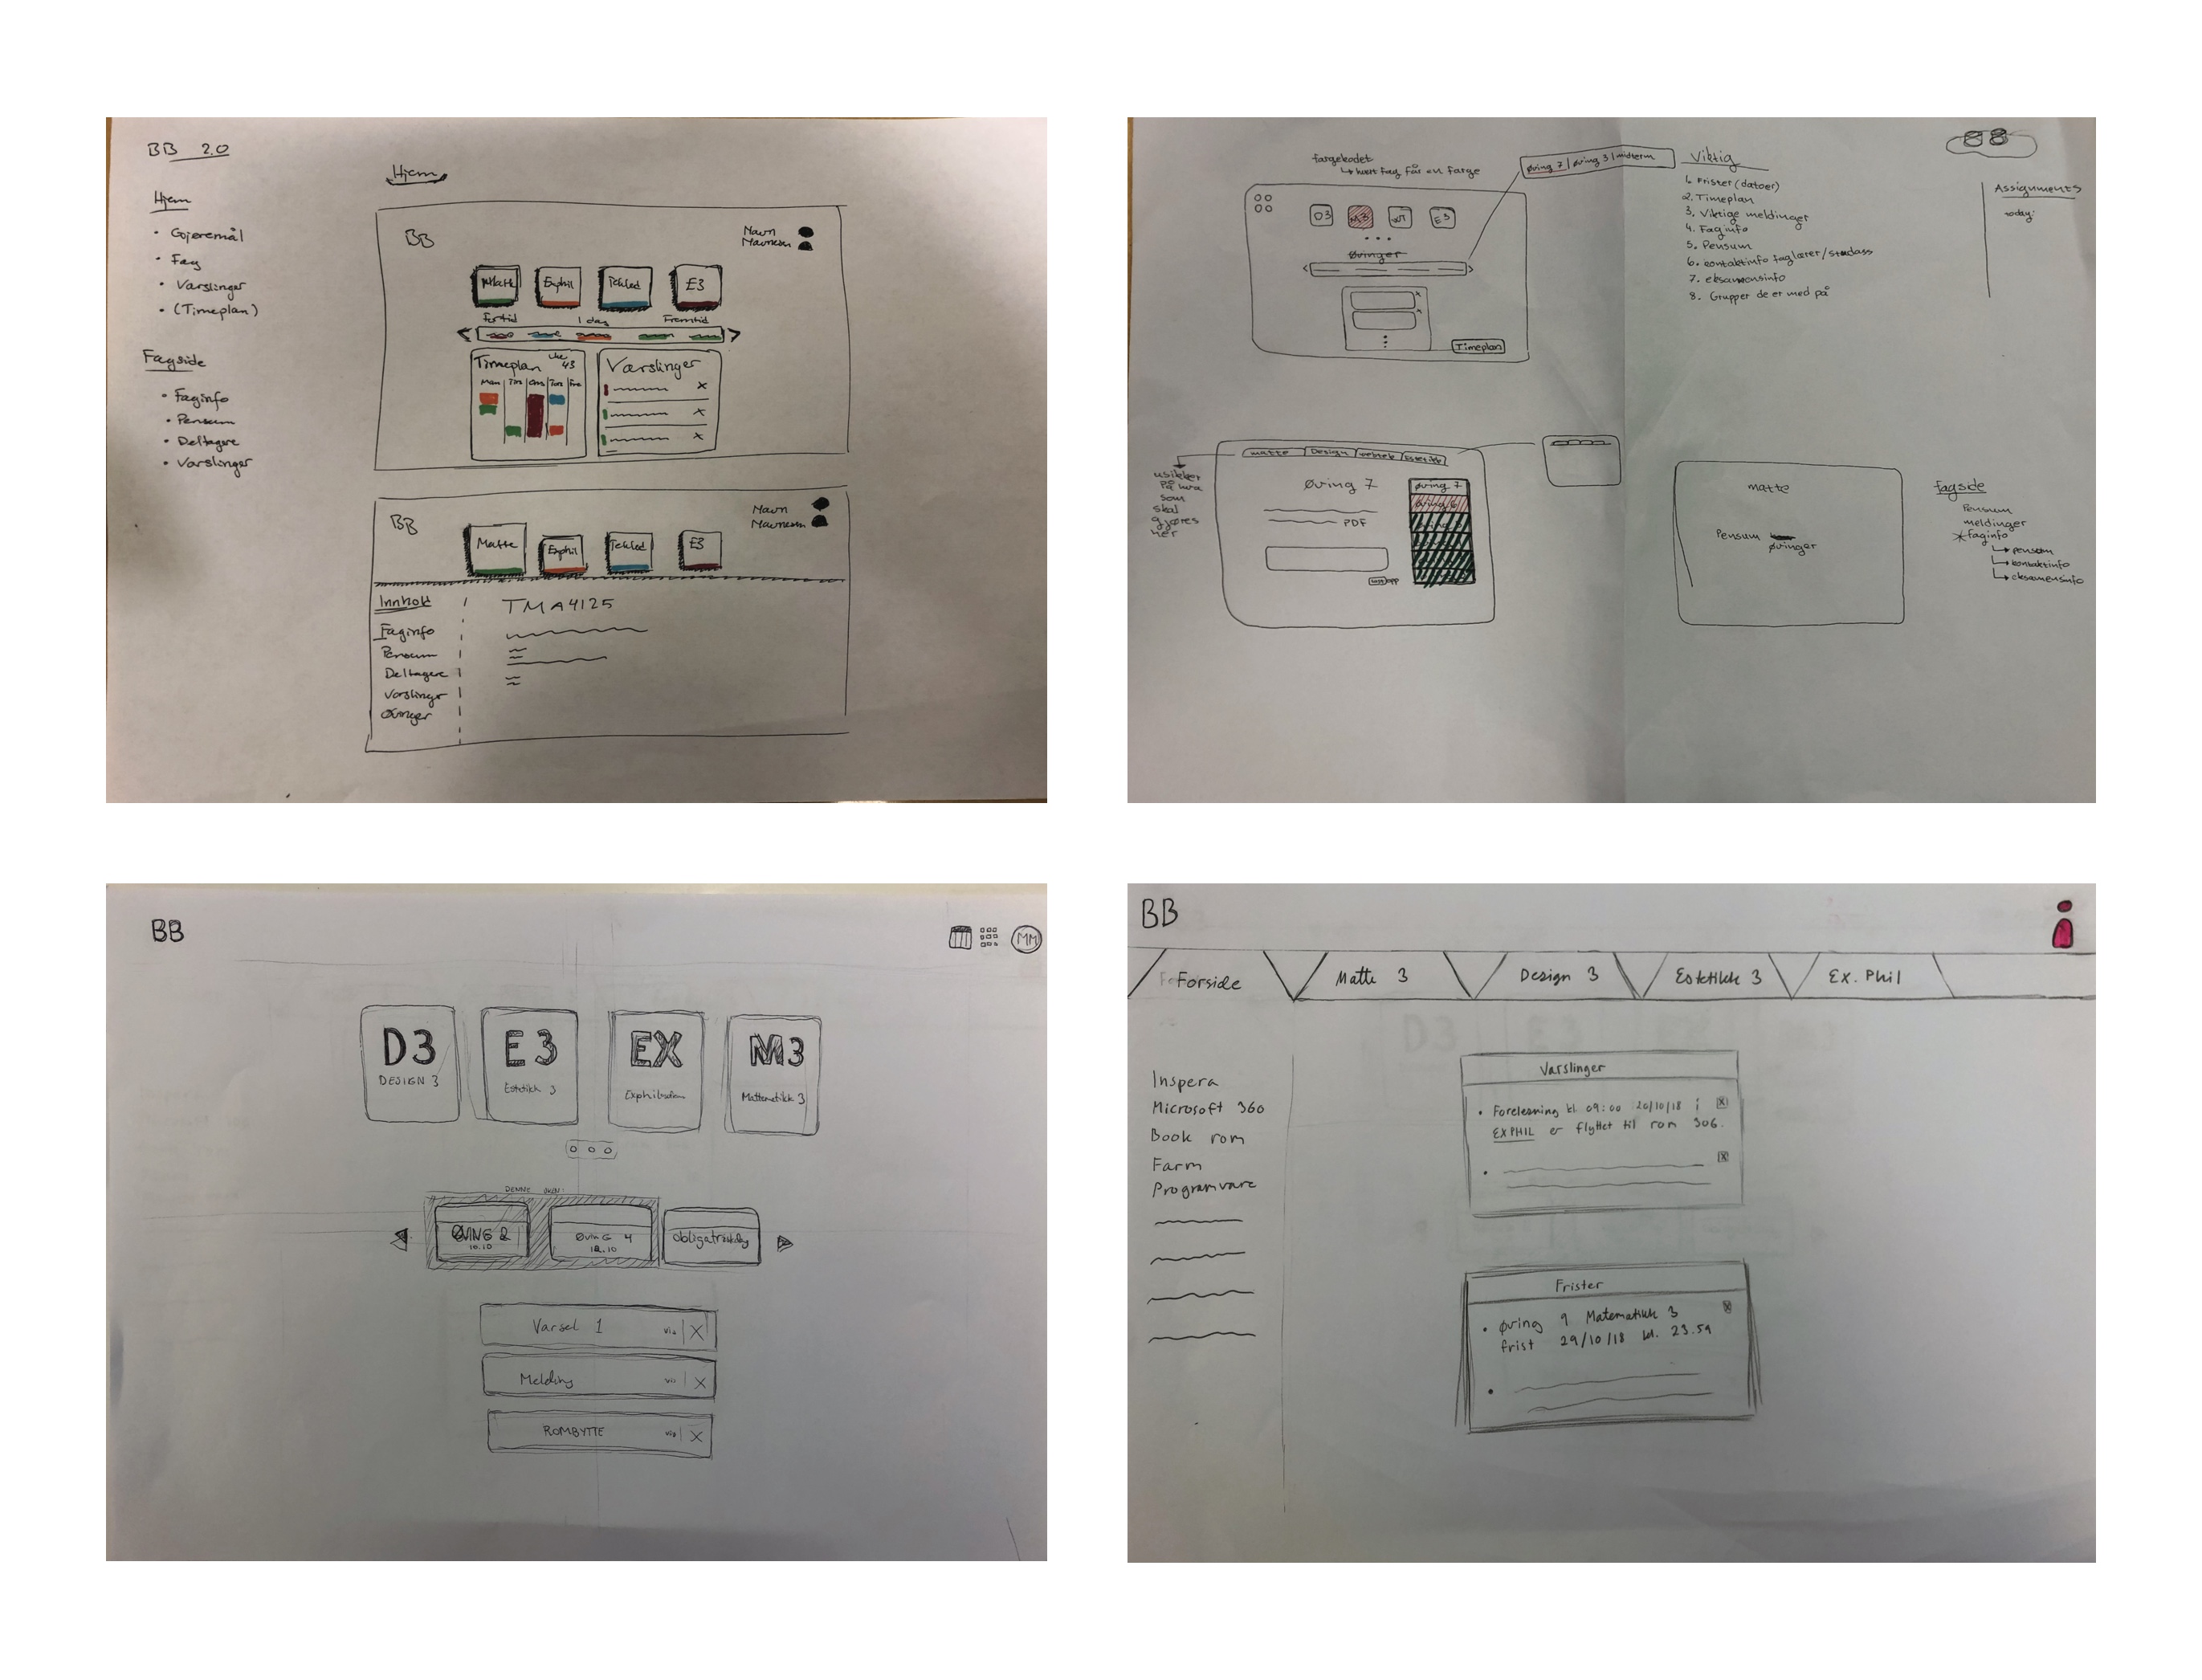 BB 2.0
Hjem
• Gojeremål
• Fag
• Varslinger
• (Timeplan)
Fagside
• Faginfo
• Pensum
• Deltagere
• Varslinger
Hjem
BB
Navn
Navnesen
Matte
Exphil
Tekled
E3
Fortid
1 dag
Fremtid
Timeplan
Uke 43
Man Tirs Ons Tors Fre
Varslinger
x
x
x
BB
Navn
Navnesen
Matte
Exphil
Tekled
E3
Innhold
Faginfo
Pensum
Deltagere
Varslinger
Øvinger
TMA4125
fargekodet
↳ hvert fag får en farge
øving 7 | øving 3 | midterm
D3
M3
E3
Øvinger
Timeplan
Viktig
1. Frister (datoer)
2. Timeplan
3. Viktige meldinger
4. Faginfo
5. Pensum
6. kontaktinfo faglærer/studass
7. eksamensinfo
8. Grupper de er med på
Assignments
today:
usikker
på hva
som
skal
gjøres
her
matte
Design
webtek
Estetikk
Øving 7
PDF
øving 7
matte
Pensum
øvinger
fagside
Pensum
meldinger
*faginfo
↳ pensum
↳ kontaktinfo
↳ eksamensinfo
BB
MM
D3
DESIGN 3
E3
Estetikk 3
EX
M3
Mattematikk 3
DENNE UKEN:
ØVING 2
10.10
ØVING 4
12.10
Varsel 1
vis | X
Melding
vis | X
ROMBYTTE
vis | X
BB
Forside
Matte 3
Design 3
Estetikk 3
Ex. Phil
Inspera
Microsoft 360
Book rom
Farm
Programvare
Varslinger
• Forelesning kl. 09:00 20/10/18 i
EXPHIL er flyttet til rom 306.
Frister
• Øving 9 Matematikk 3
frist 29/10/18 kl. 23.59